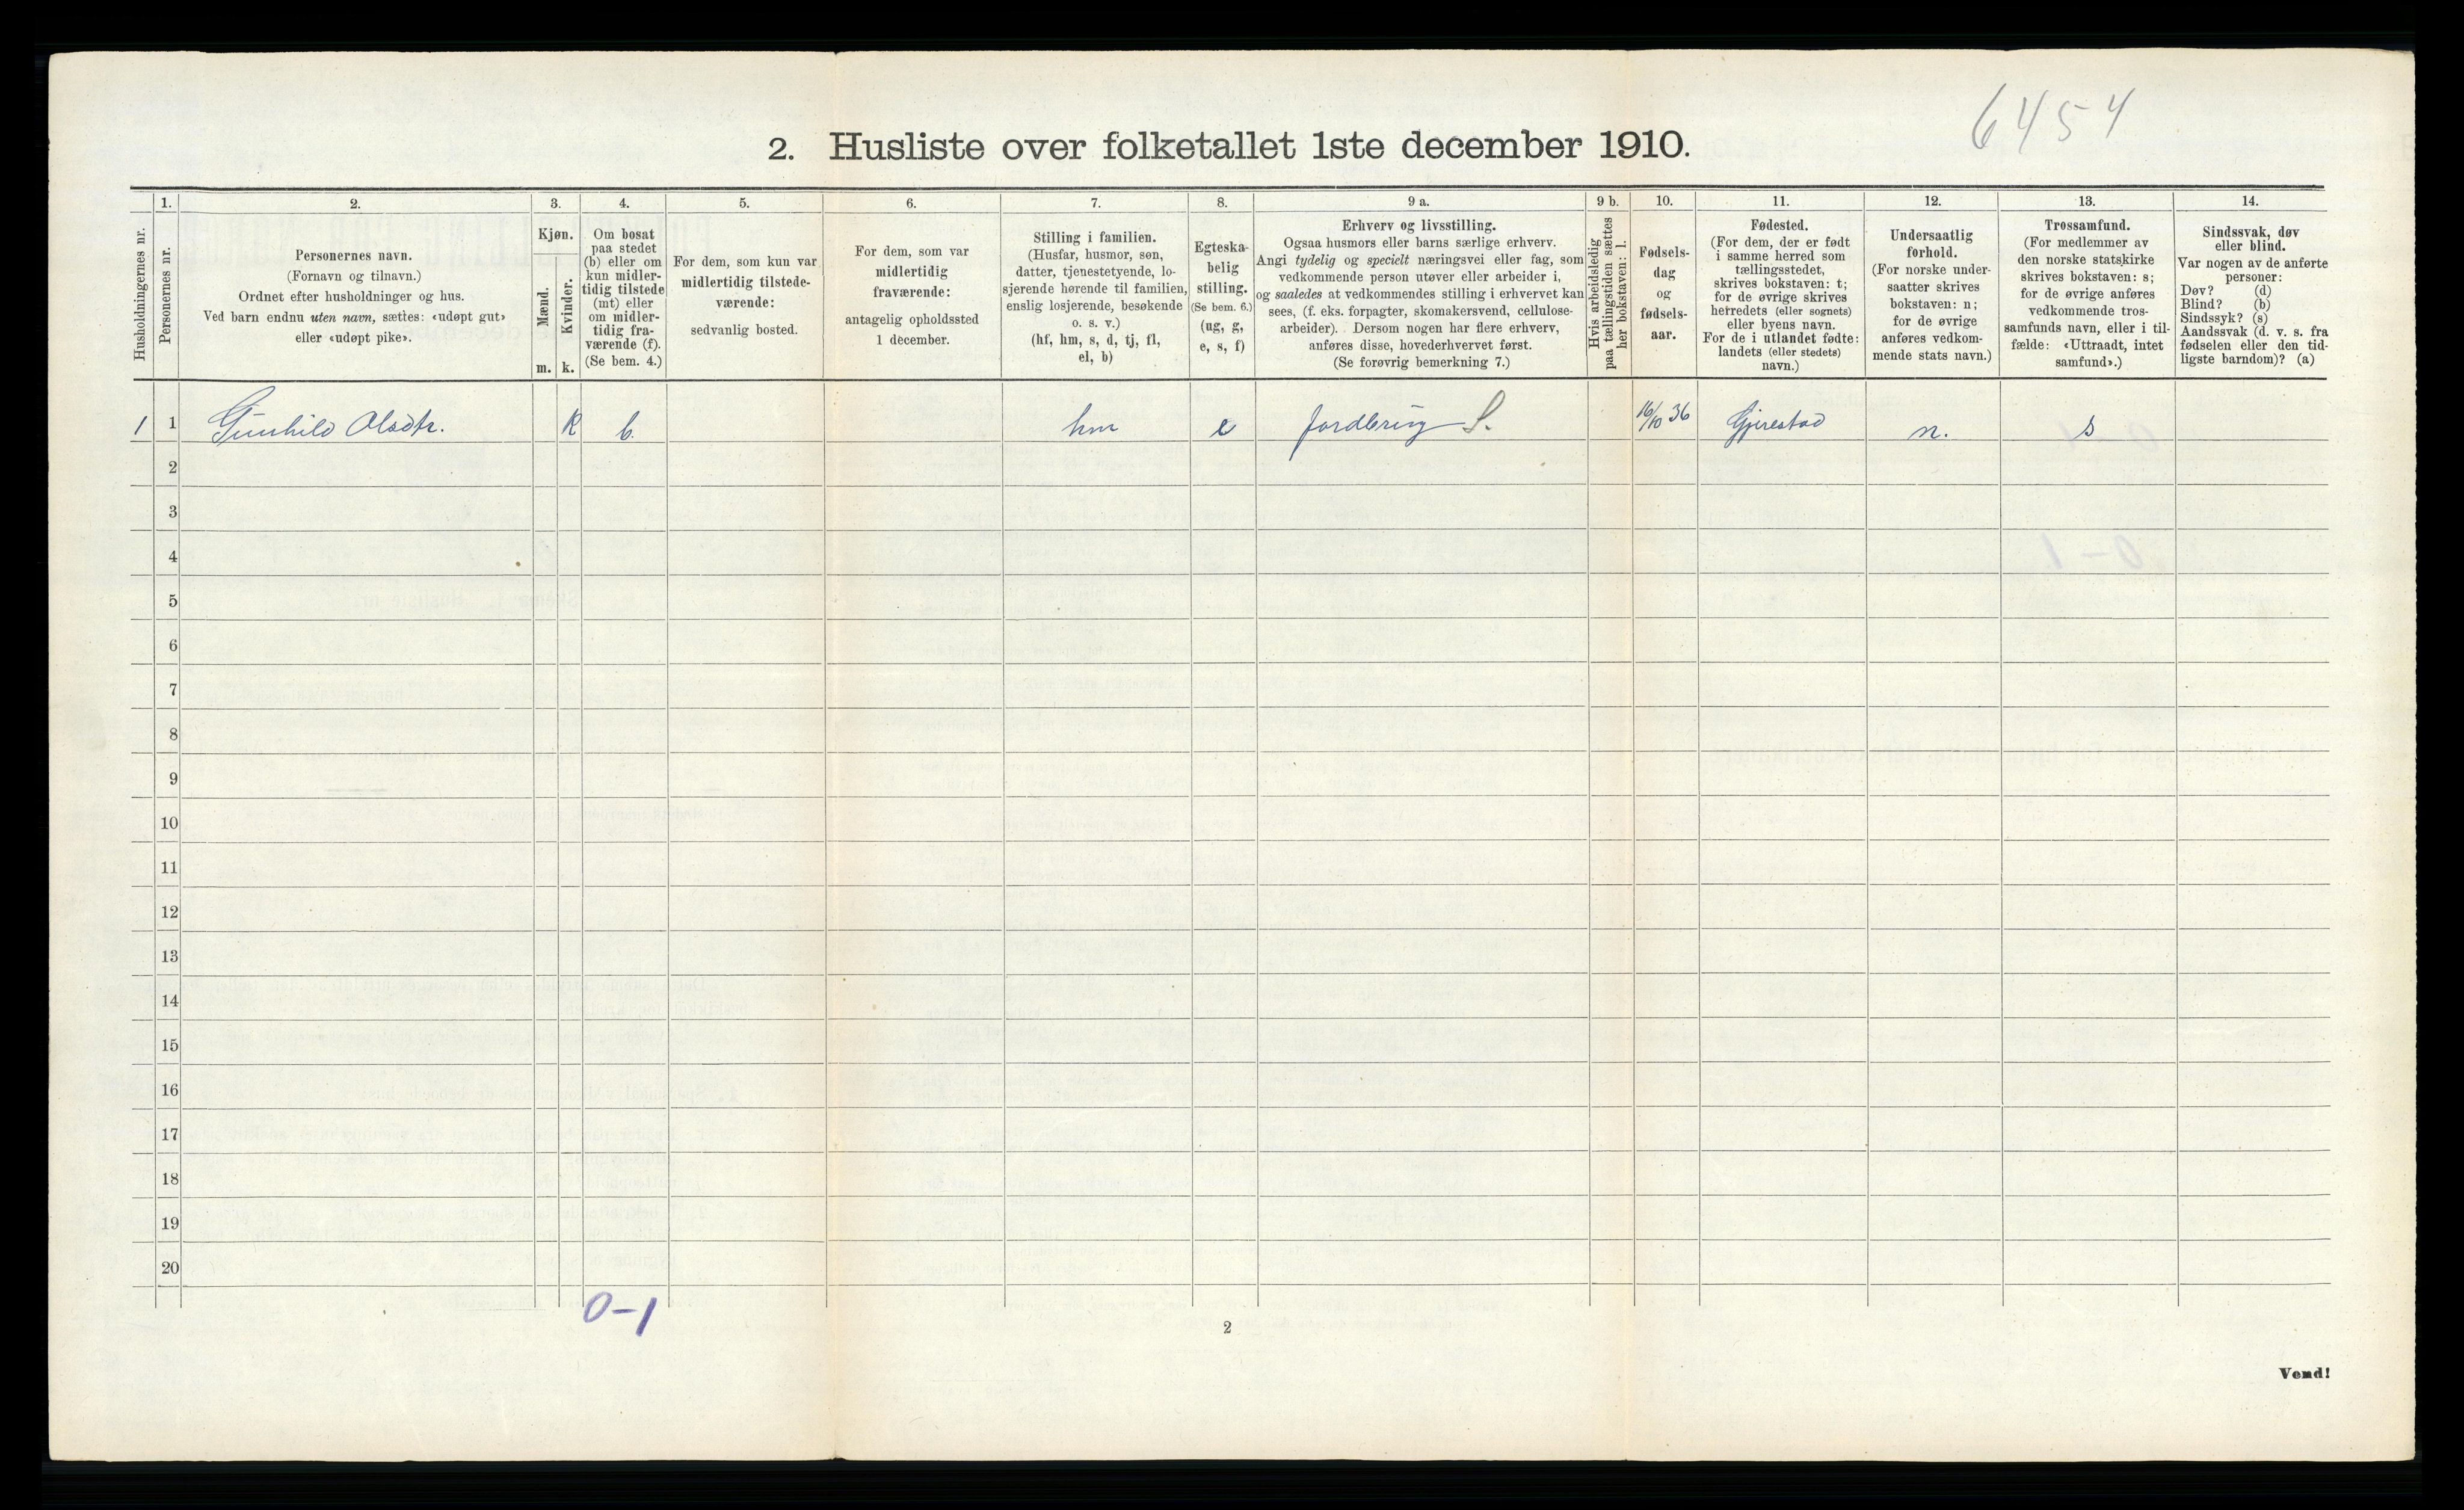 6454
2. Husliste over folketallet 1ste december 1910.
Husholdningernes nr.
1.
Personernes nr.
2.
Personernes navn.
(Fornavn og tilnavn.)
Ordnet efter husholdninger og hus.
Ved barn endnu uten navn, sættes: «udøpt gut»
eller «udøpt pike».
3.
Kjøn.
Mænd.
Kvinder.
m. k.
4.
Om bosat
paa stedet
(b) eller om
kun midler-
tidig tilstede
(mt) eller
om midler-
tidig fra-
værende (f).
(Se bem. 4.)
5.
For dem, som kun var
midlertidig tilstede-
værende:
sedvanlig bosted.
6.
For dem, som var
midlertidig
fraværende:
antagelig opholdssted
1 december.
7.
Stilling i familien.
(Husfar, husmor, søn,
datter, tjenestetyende, lo-
sjerende hørende til familien,
enslig losjerende, besøkende
o. s. v.)
(hf, hm, s, d, tj, fl,
el, b)
8.
Egteska-
belig
stilling.
(Se bem. 6.)
(ug, g,
e, s, f)
9 a.
Erhverv og livsstilling.
Ogsaa husmors eller barns særlige erhverv.
Angi tydelig og specielt næringsvei eller fag, som
vedkommende person utøver eller arbeider i,
og saaledes at vedkommendes stilling i erhvervet kan
sees, (f. eks. forpagter, skomakersvend, cellulose-
arbeider). Dersom nogen har flere erhverv,
anføres disse, hovederhvervet først.
(Se forøvrig bemerkning 7.)
9 b.
Hvis arbeidsledig
paa tællingstiden sættes
her bokstaven: l.
10.
Fødsels-
dag
og
fødsels-
aar.
11.
Fødested.
(For dem, der er født
i samme herred som
tællingsstedet,
skrives bokstaven: t;
for de øvrige skrives
herredets (eller sognets)
eller byens navn.
For de i utlandet fødte:
landets (eller stedets)
navn.)
12.
Undersaatlig
forhold.
(For norske under-
saatter skrives
bokstaven: n;
for de øvrige
anføres vedkom-
mende stats navn.)
13.
Trossamfund.
(For medlemmer av
den norske statskirke
skrives bokstaven: s;
for de øvrige anføres
vedkommende tros-
samfunds navn, eller i til-
fælde: «Uttraadt, intet
samfund».)
14.
Sindssvak, døv
eller blind.
Var nogen av de anførte
personer:
Døv? (d)
Blind? (b)
Sindssyk? (s)
Aandssvak (d. v. s. fra
fødselen eller den tid-
ligste barndom)? (a)
1 1 Gunhild Olsdtr. K b. hm e jordbrug S. 16/10 36 Gjerestad n. s
2
3
4
5
6
7
8
9
10
11
12
13
14
15
16
17
18
19
20
0-1
2
Vend!